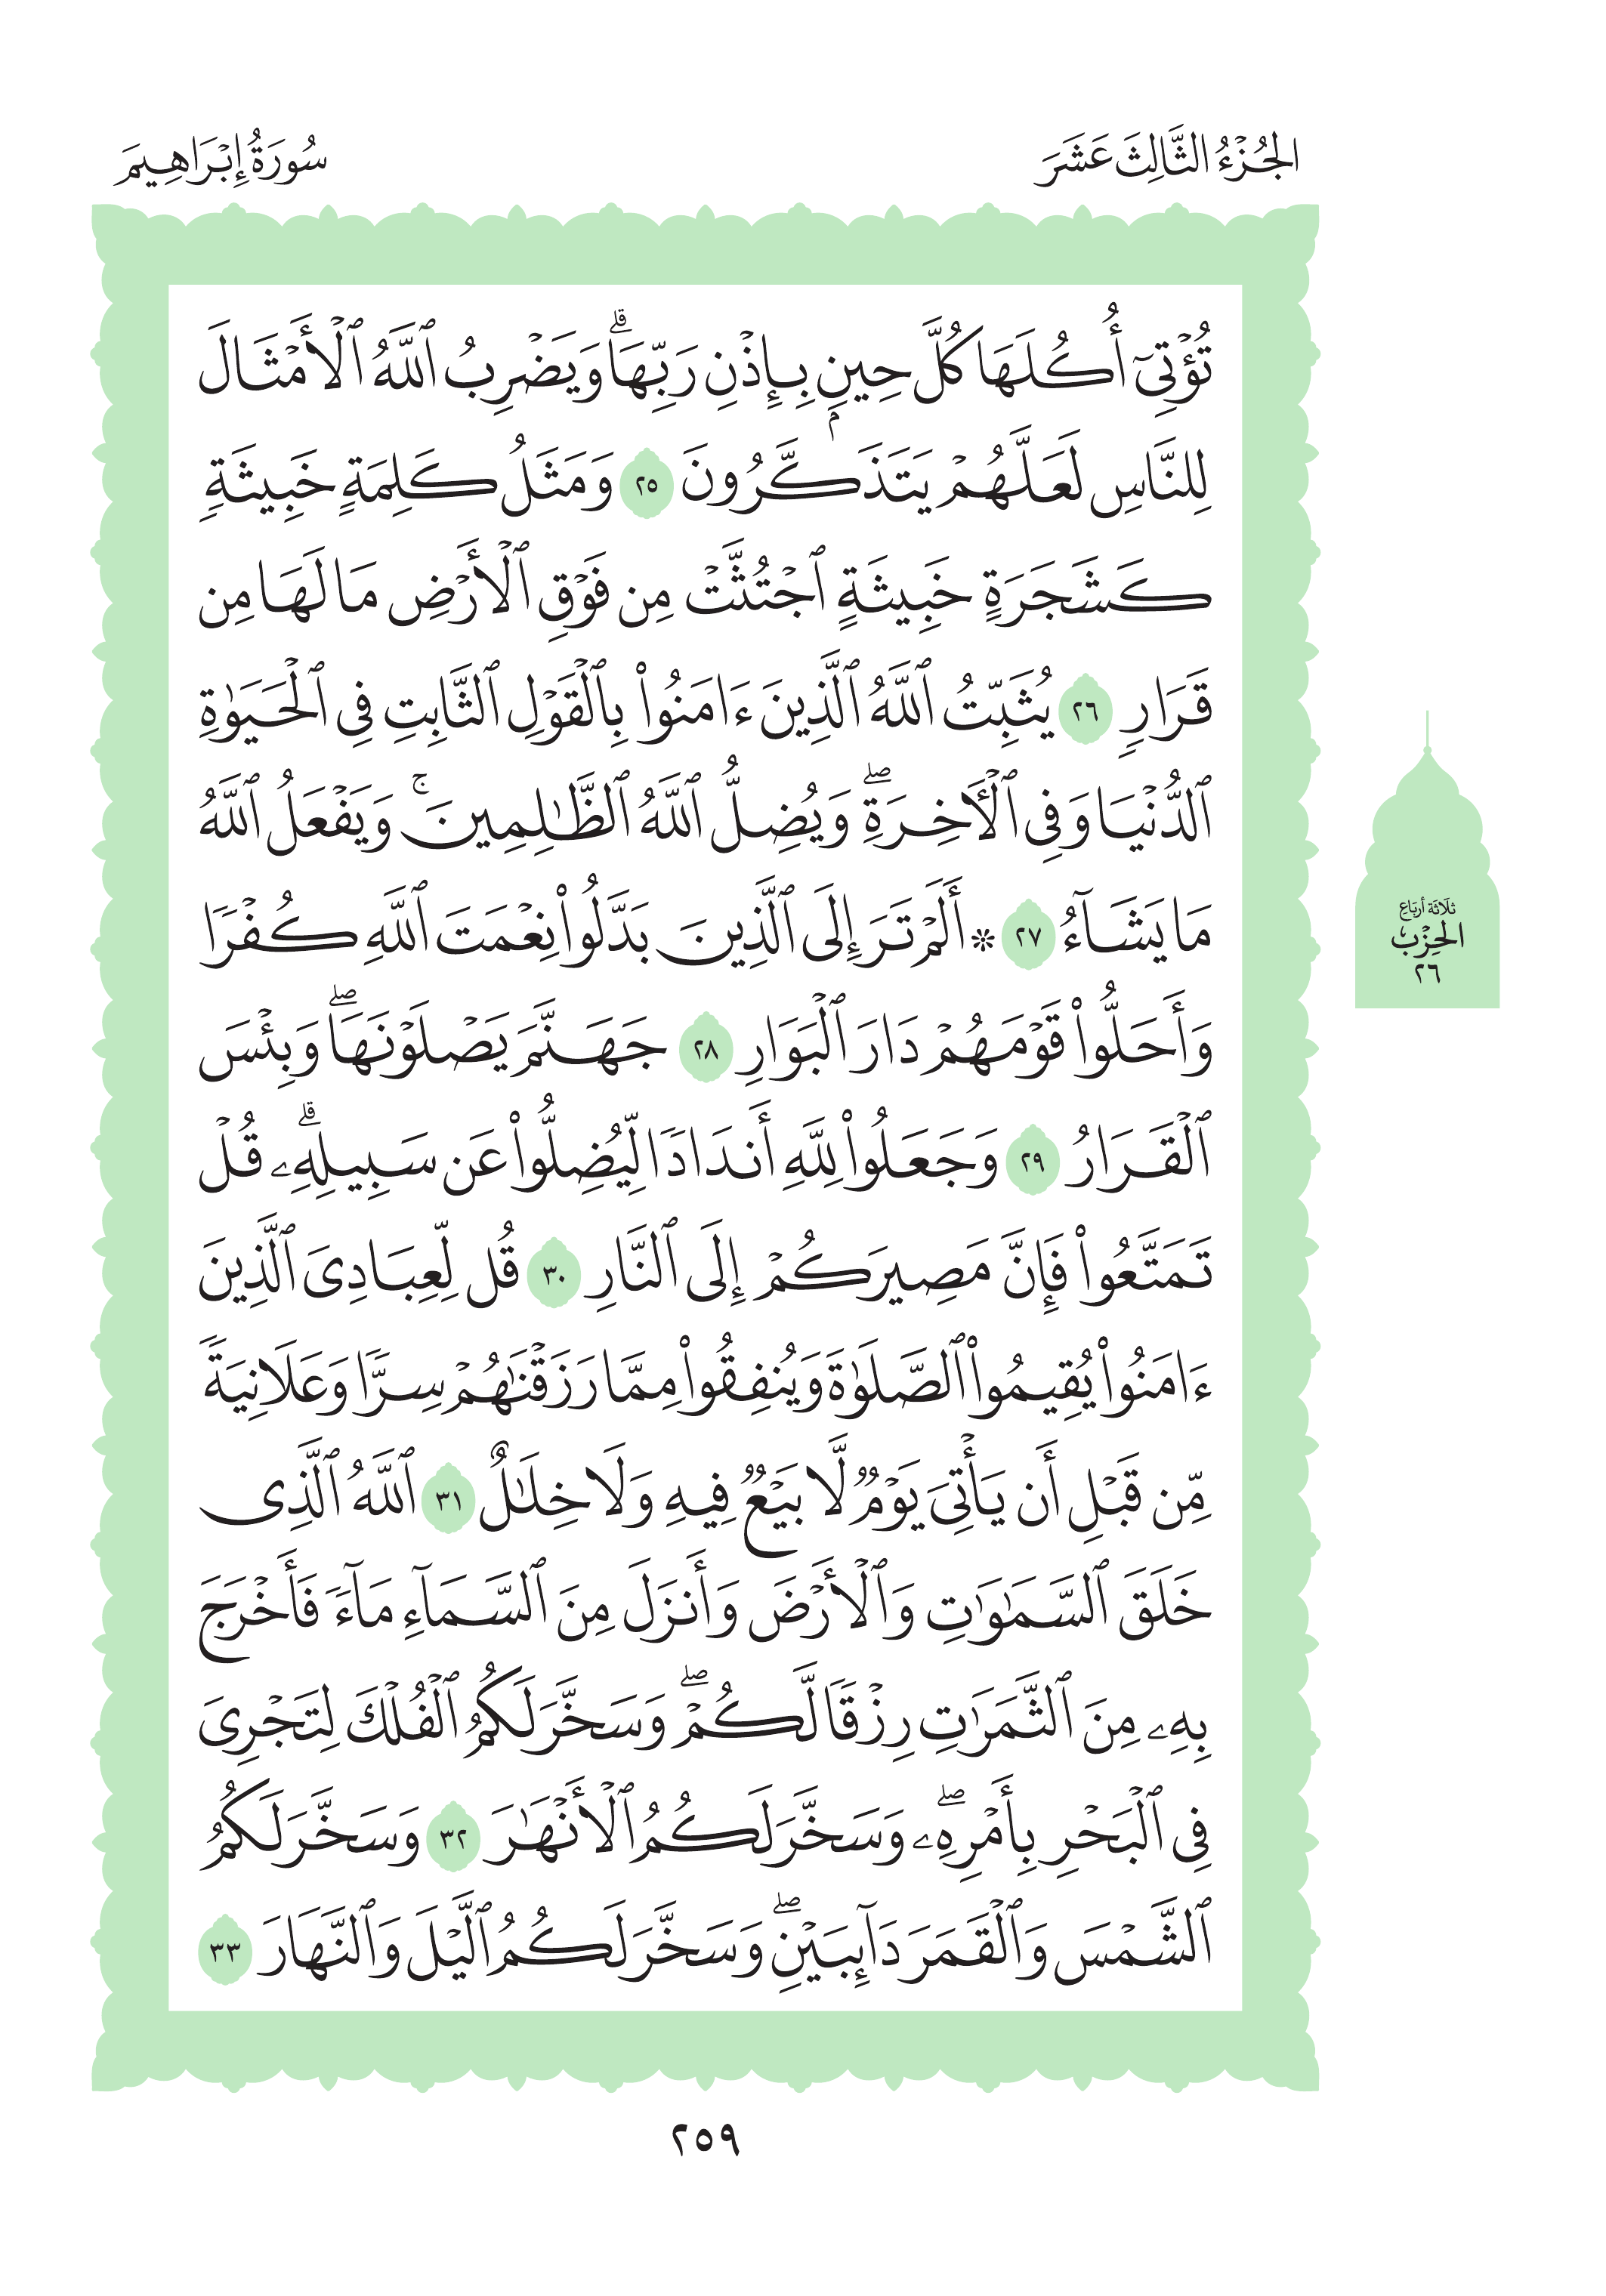 الجُزْءُ الثَّالِثَ عَشَرَ
سُورَةُ إِبْرَاهِيمَ
تُؤْتِىٓ أُكُلَهَا كُلَّ حِينٍۭ بِإِذْنِ رَبِّهَاۗ وَيَضْرِبُ ٱللَّهُ ٱلْأَمْثَالَ
لِلنَّاسِ لَعَلَّهُمْ يَتَذَكَّرُونَ ٢٥ وَمَثَلُ كَلِمَةٍ خَبِيثَةٍ
كَشَجَرَةٍ خَبِيثَةٍ ٱجْتُثَّتْ مِن فَوْقِ ٱلْأَرْضِ مَا لَهَا مِن
قَرَارٍ ٢٦ يُثَبِّتُ ٱللَّهُ ٱلَّذِينَ ءَامَنُوا۟ بِٱلْقَوْلِ ٱلثَّابِتِ فِى ٱلْحَيَوٰةِ
ٱلدُّنْيَا وَفِى ٱلْـَٔاخِرَةِۖ وَيُضِلُّ ٱللَّهُ ٱلظَّـٰلِمِينَۚ وَيَفْعَلُ ٱللَّهُ
مَا يَشَآءُ ٢٧ ۞ أَلَمْ تَرَ إِلَى ٱلَّذِينَ بَدَّلُوا۟ نِعْمَتَ ٱللَّهِ كُفْرًا
وَأَحَلُّوا۟ قَوْمَهُمْ دَارَ ٱلْبَوَارِ ٢٨ جَهَنَّمَ يَصْلَوْنَهَاۖ وَبِئْسَ
ٱلْقَرَارُ ٢٩ وَجَعَلُوا۟ لِلَّهِ أَندَادًا لِّيُضِلُّوا۟ عَن سَبِيلِهِۦۗ قُلْ
تَمَتَّعُوا۟ فَإِنَّ مَصِيرَكُمْ إِلَى ٱلنَّارِ ٣٠ قُل لِّعِبَادِىَ ٱلَّذِينَ
ءَامَنُوا۟ يُقِيمُوا۟ ٱلصَّلَوٰةَ وَيُنفِقُوا۟ مِمَّا رَزَقْنَـٰهُمْ سِرًّا وَعَلَانِيَةً
مِّن قَبْلِ أَن يَأْتِىَ يَوْمٌ لَّا بَيْعٌ فِيهِ وَلَا خِلَـٰلٌ ٣١ ٱللَّهُ ٱلَّذِى
خَلَقَ ٱلسَّمَـٰوَٰتِ وَٱلْأَرْضَ وَأَنزَلَ مِنَ ٱلسَّمَآءِ مَآءً فَأَخْرَجَ
بِهِۦ مِنَ ٱلثَّمَرَٰتِ رِزْقًا لَّكُمْۖ وَسَخَّرَ لَكُمُ ٱلْفُلْكَ لِتَجْرِىَ
فِى ٱلْبَحْرِ بِأَمْرِهِۦۖ وَسَخَّرَ لَكُمُ ٱلْأَنْهَـٰرَ ٣٢ وَسَخَّرَ لَكُمُ
ٱلشَّمْسَ وَٱلْقَمَرَ دَآئِبَيْنِۖ وَسَخَّرَ لَكُمُ ٱلَّيْلَ وَٱلنَّهَارَ ٣٣
ثلَاثَة أربَاع
الحِزْب
٢٦
٢٥٩